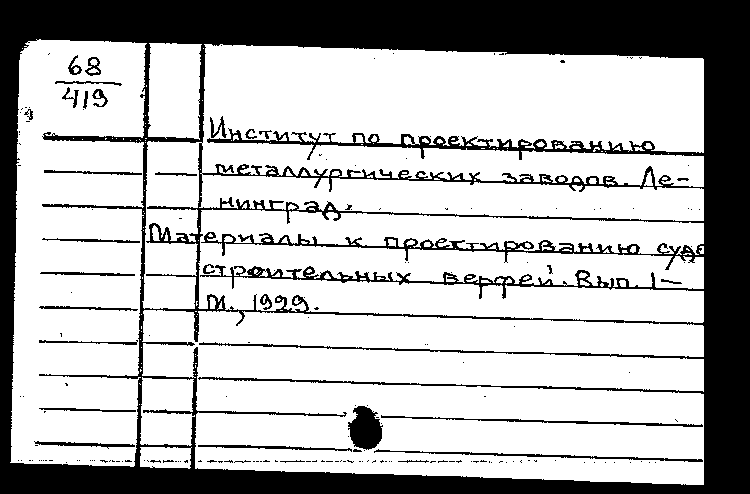 68
419
Институт по проектированию
металлургических заводов. Ле-
нинград.
Материалы к проектированию судо
строительных верфей. Вып. 1—
М., 1929.